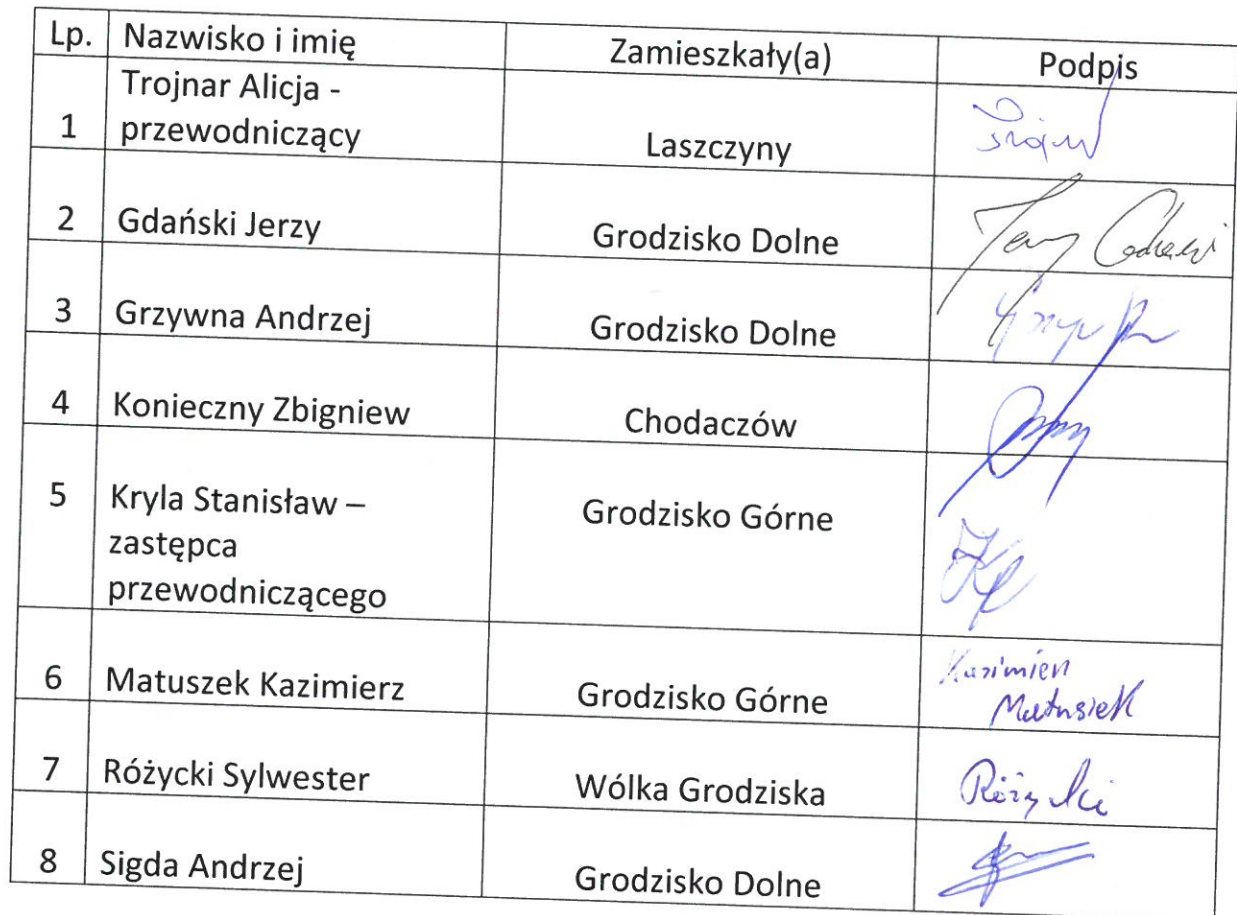 Lp. Nazwisko i imię Zamieszkały(a) Podpis
Trojnar Alicja -
1 przewodniczący Laszczyny
2 Gdański Jerzy Grodzisko Dolne Jerzy Gdański
3 Grzywna Andrzej Grodzisko Dolne
4 Konieczny Zbigniew Chodaczów
5 Kryla Stanisław – Grodzisko Górne
zastępca
przewodniczącego
Kazimierz
6 Matuszek Kazimierz Grodzisko Górne Matusiek
7 Różycki Sylwester Wólka Grodziska Różycki
8 Sigda Andrzej Grodzisko Dolne